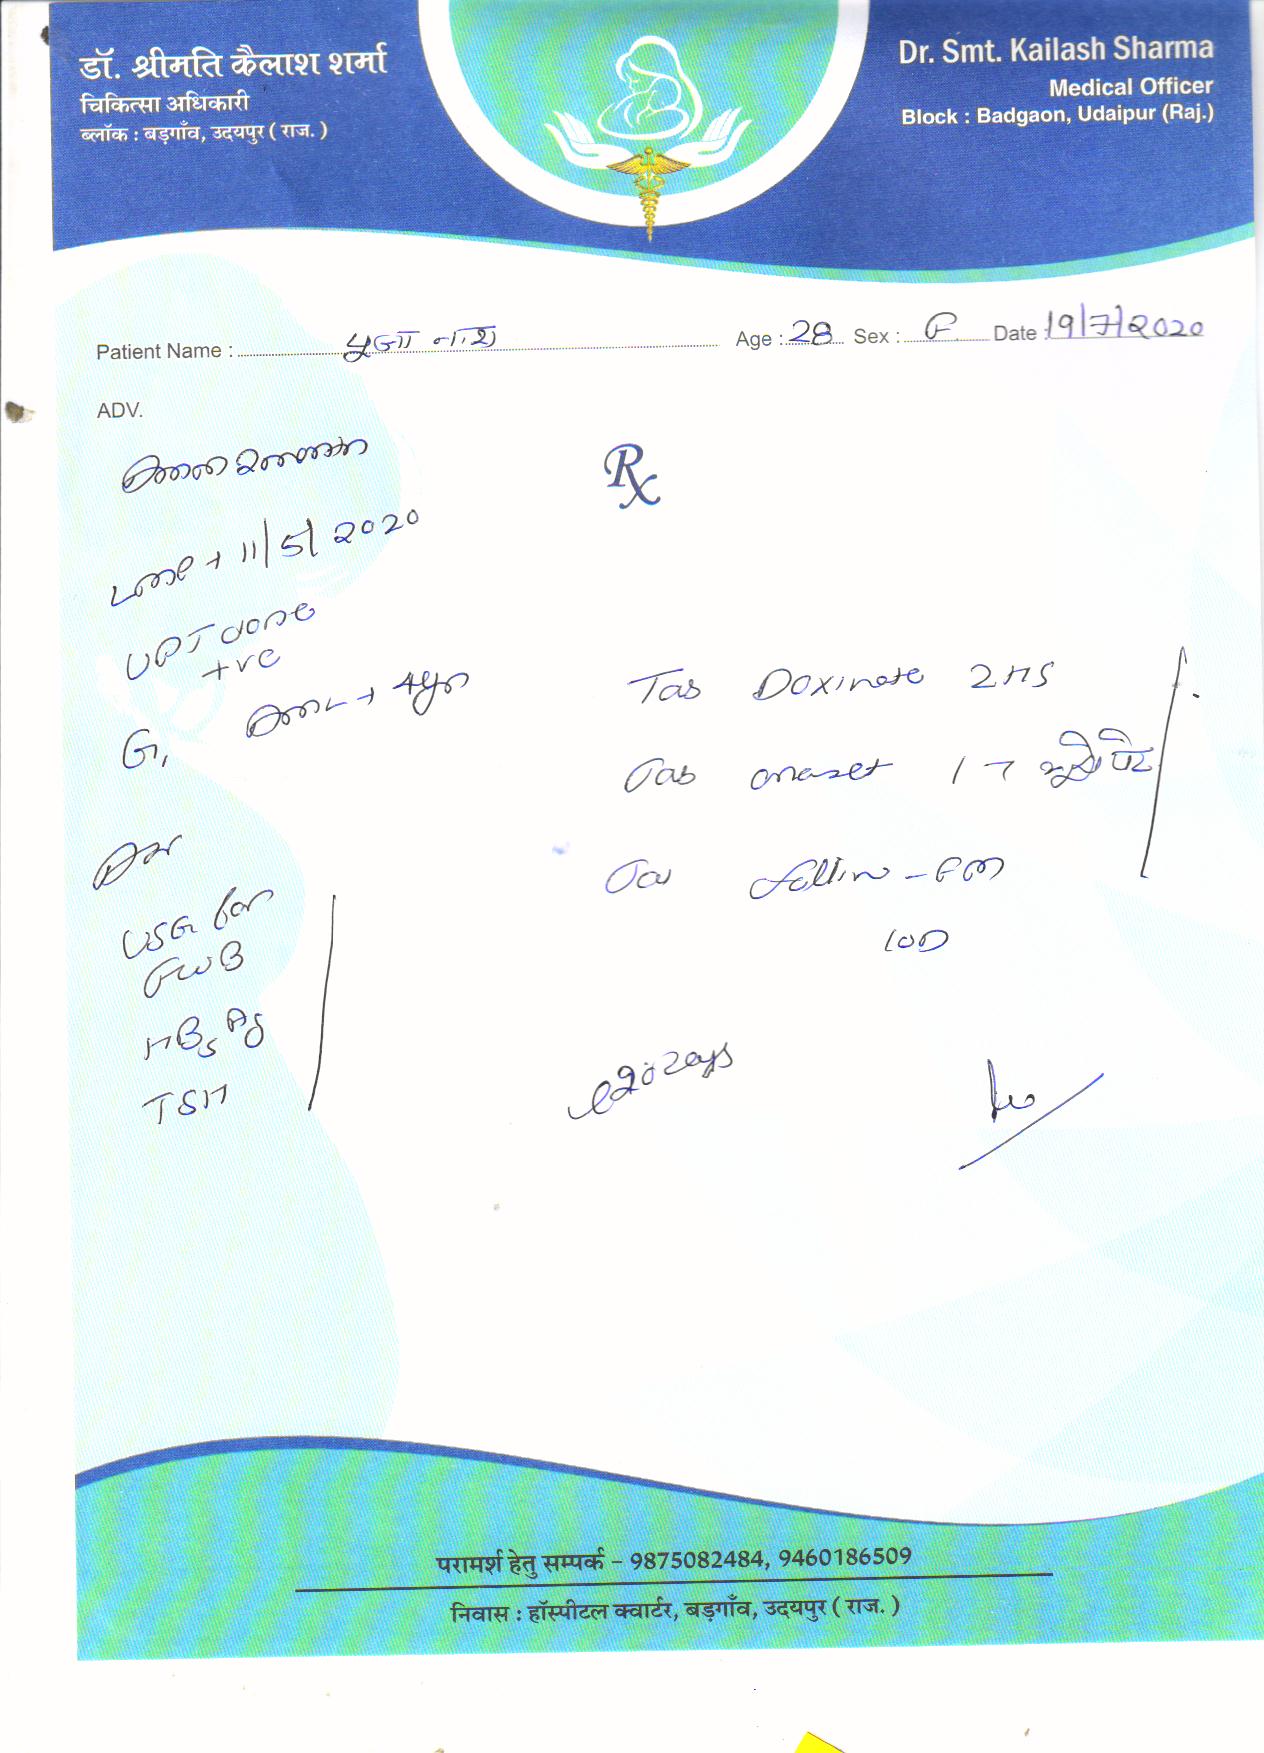 डॉ. श्रीमति कैलाश शर्मा
चिकित्सा अधिकारी
ब्लॉक : बड़गाँव, उदयपुर ( राज. )
Dr. Smt. Kailash Sharma
Medical Officer
Block : Badgaon, Udaipur (Raj.)
Patient Name : Age : 28 Sex : F Date 19/7/2020
ADV.
Rx
LMP → 11/5/2020
UPT done
+ve
G1 → 4yr
USG for
FWB
HBsAg
TSH
Tab Doxinate 2 HS
Tab 1
Tab Follin - FM
1 OD
20 days
परामर्श हेतु सम्पर्क – 9875082484, 9460186509
निवास : हॉस्पीटल क्वार्टर, बड़गाँव, उदयपुर ( राज. )